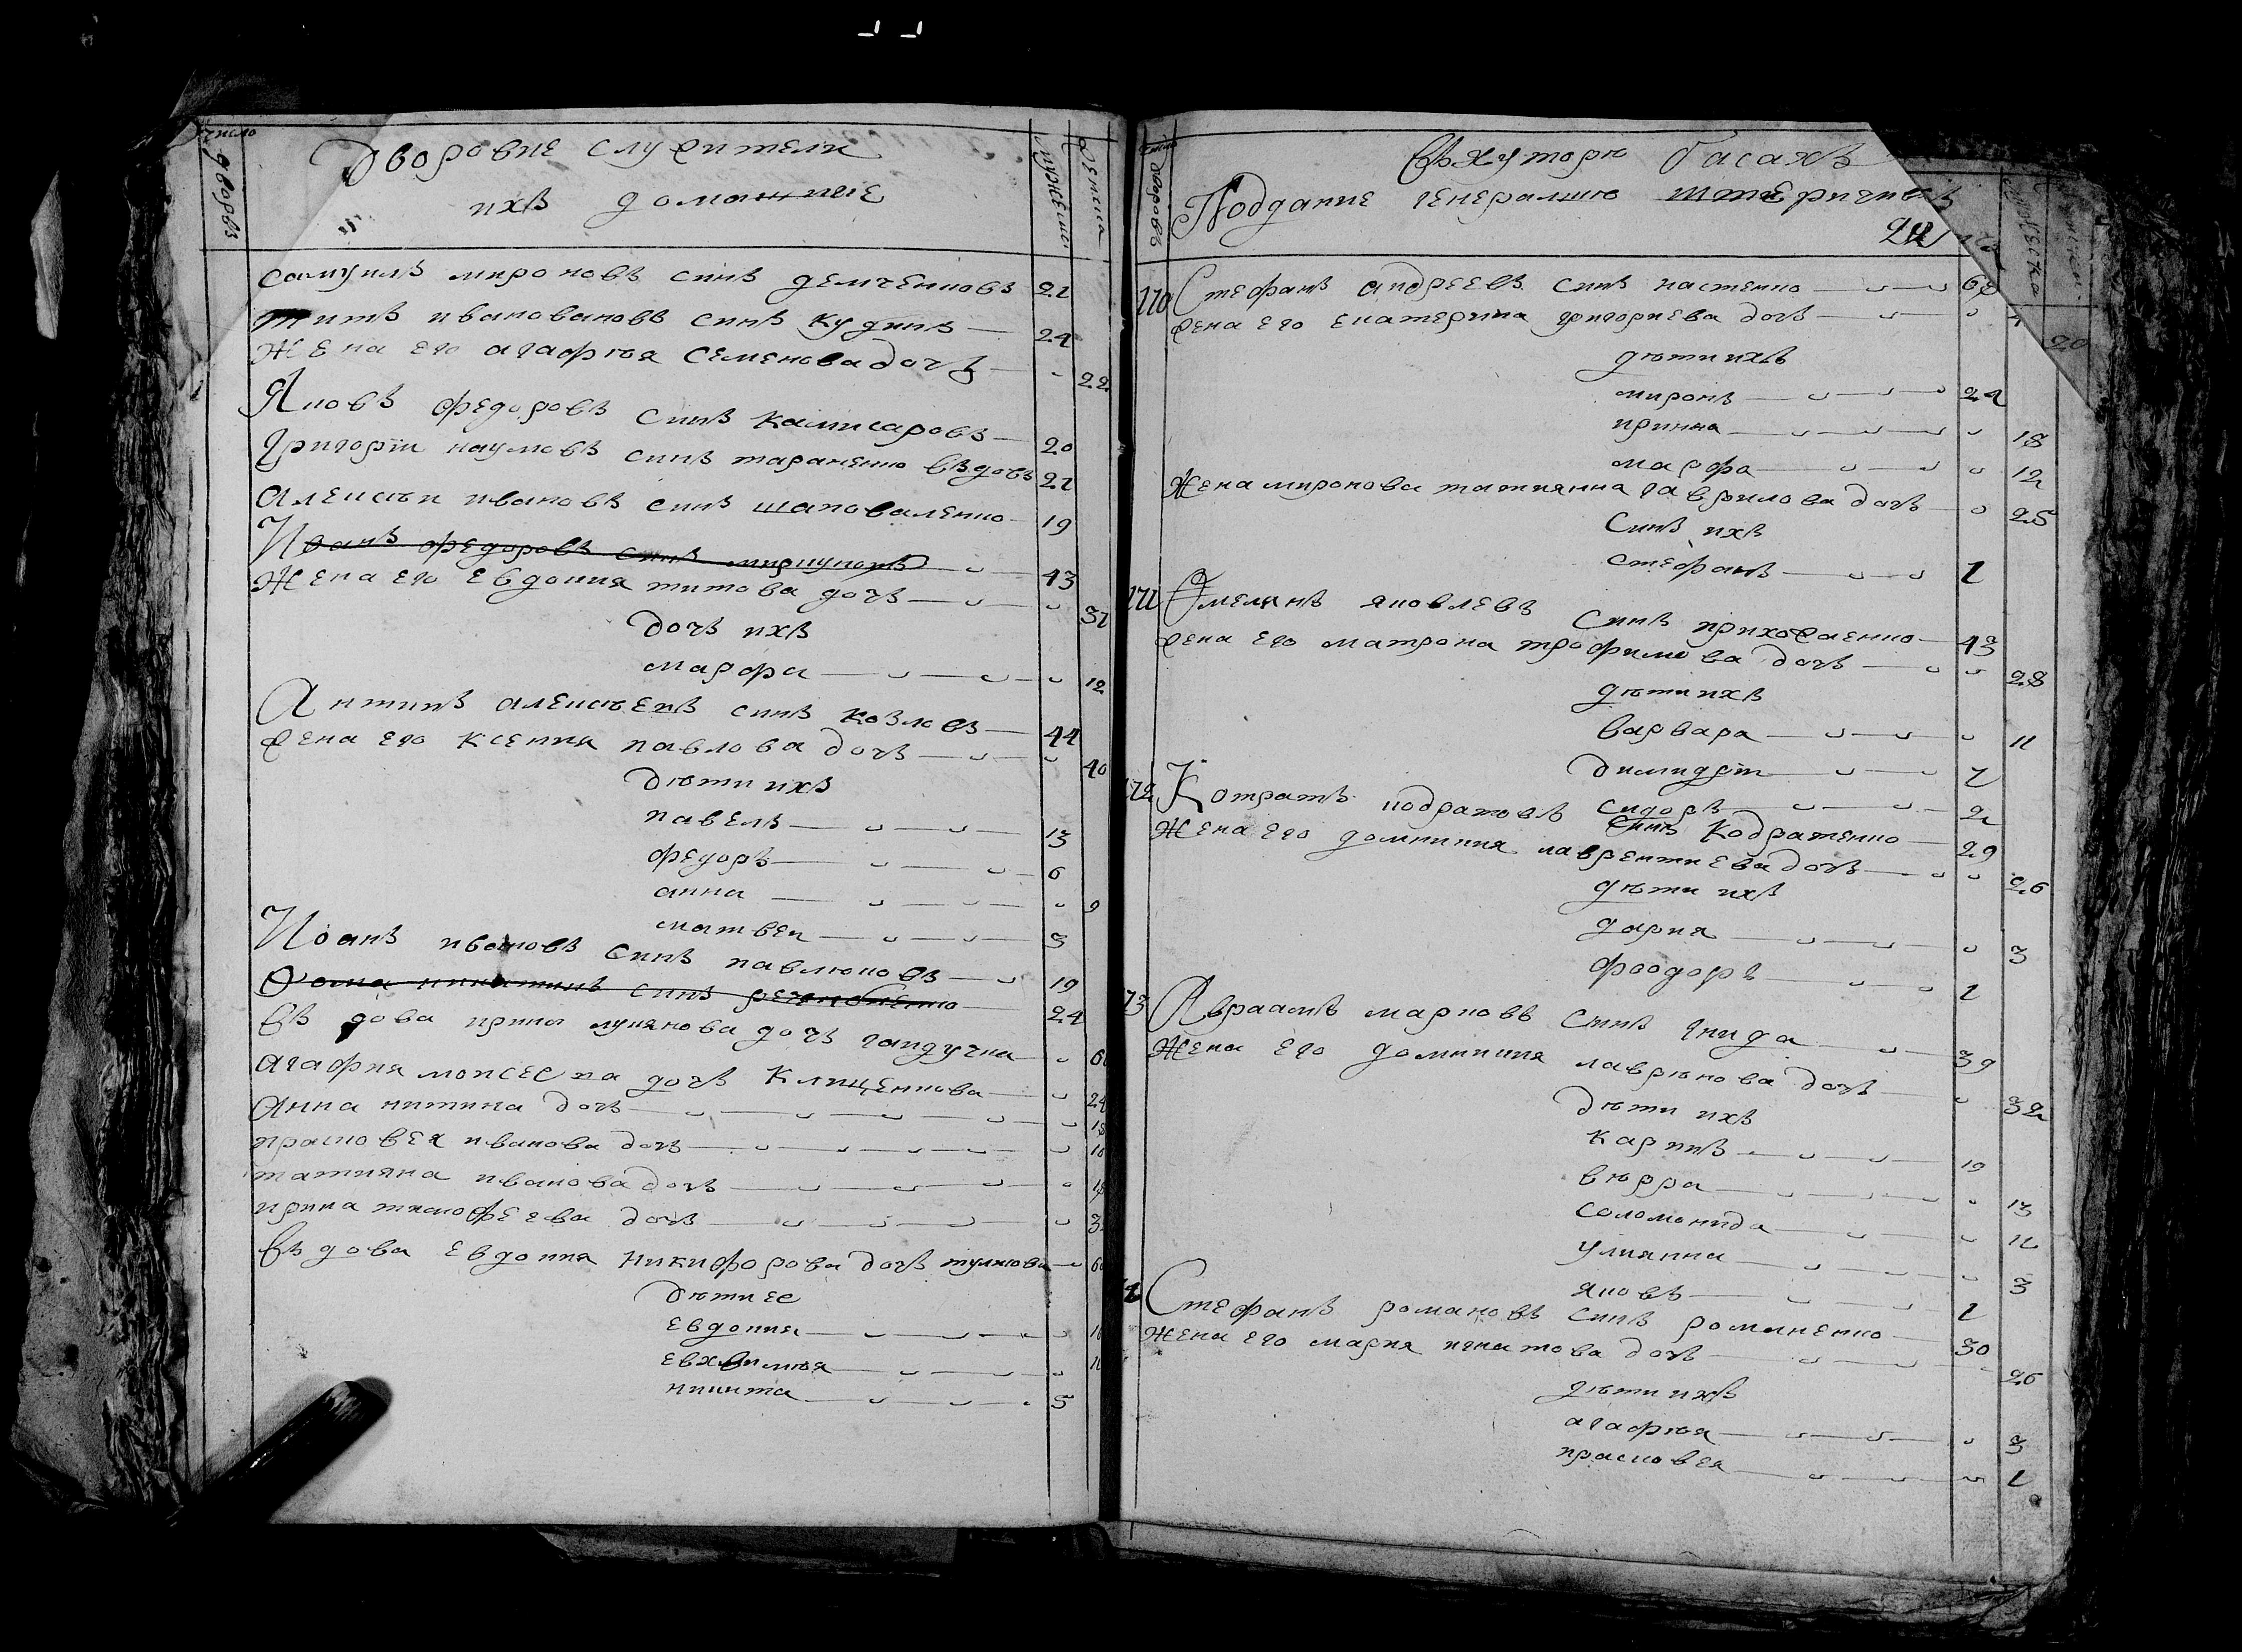 число
дворовъ
Дворовие служители
ихъ домашние
мужеска
женска
самуилъ мироновъ синъ демченковъ 21
титъ ивановановъ синъ кудинъ 24
Жена его агафѣя семенова дочъ 22
Яковъ федоровъ синъ камисаровъ 20
Григории наумовъ синъ тараненко въдовъ 21
алексѣи ивановъ синъ шаповаленко 19
Иванъ федоровъ синъ 43
Жена его евдокия титова дочъ 31
дочъ ихъ
марфа 12
Антипъ алексѣевъ синъ козловъ 44
жена его ксения павлова дочъ 40
дѣти ихъ
павелъ 13
федоръ 6
анна 9
матвеи 3
Иоанъ ивановъ синъ павлюковъ 19
Фома никитинъ синъ 24
въдова ирина лукянова дочъ гаидучка 6
агафия моисеева дочъ клищенкова 24
анна никитина дочъ 18
прасковея иванова дочъ 16
татияна иванова дочъ 18
ирина тимофеева дочъ 3
въдова евдокия никифорова дочъ 60
дѣти ее
евдокия 16
евхимѣя 11
никита 5
число
дворовъ
въ хуторѣ басахъ
Поддание генералшю
мужеска
20
170 Стефанъ андреевъ синъ пастенко 68
жена его екатерина григориева дочъ
дѣти ихъ
миронъ 24
ирина 18
марфа 12
Жена миронова татиянна гаврилова дочъ 25
Синъ ихъ
стефанъ 1
171 Омелянъ яковлевъ синъ приходенко 43
жена его матрона трофимова дочъ 28
дѣти ихъ
варвара 11
димидѣи 7
сидоръ 2
172 Котратъ кодратовъ синъ кодратенко 29
Жена его домникия лаврентиева дочъ 26
дѣти ихъ
дария 3
феодоръ 1
173 Авраамъ марковъ синъ гнида 39
Жена его домникия лаврѣнова дочъ 32
дѣти ихъ
карпъ 19
вѣрра 13
соломонида 11
улиянна 3
яковъ 1
Стефанъ романовъ синъ романенко 30
Жена его мария игнатова дочъ 26
дѣти ихъ
агафѣя 3
прасковея 1